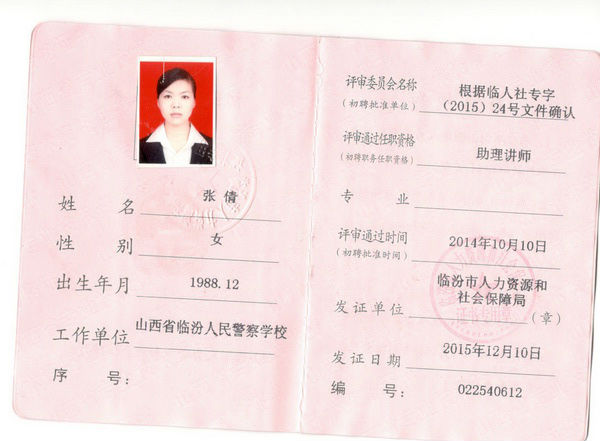 姓 名 张倩
性 别 女
出生年月 1988.12
工作单位 山西省临汾人民警察学校
序 号:
评审委员会名称 根据临人社专字
(初聘批准单位) (2015) 24号文件确认
评审通过任职资格 助理讲师
(初聘职务任职资格)
专 业
评审通过时间 2014年10月10日
(初聘批准时间)
临汾市人力资源和
社会保障局
发证单位 (章)
发证日期 2015年12月10日
编 号: 022540612